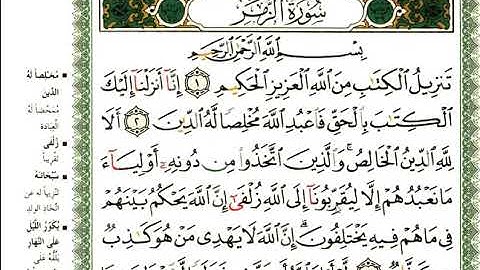 سُورَةُ الزُّمَرِ
بِسْمِ اللَّهِ الرَّحْمَٰنِ الرَّحِيمِ
تَنزِيلُ الْكِتَٰبِ مِنَ اللَّهِ الْعَزِيزِ الْحَكِيمِ ١ إِنَّآ أَنزَلْنَآ إِلَيْكَ
الْكِتَٰبَ بِالْحَقِّ فَاعْبُدِ اللَّهَ مُخْلِصًا لَّهُ الدِّينَ ٢ أَلَا
لِلَّهِ الدِّينُ الْخَالِصُ ۚ وَالَّذِينَ اتَّخَذُوا۟ مِن دُونِهِۦٓ أَوْلِيَآءَ
مَا نَعْبُدُهُمْ إِلَّا لِيُقَرِّبُونَآ إِلَى اللَّهِ زُلْفَىٰٓ إِنَّ اللَّهَ يَحْكُمُ بَيْنَهُمْ
فِى مَا هُمْ فِيهِ يَخْتَلِفُونَ ۗ إِنَّ اللَّهَ لَا يَهْدِى مَنْ هُوَ كَٰذِبٌ
مُخْلِصاً لَهُ
الدّين
مُمَحِّضاً لَهُ
العِبَادَة
زُلْفَى
تقريباً
سُبْحَانَهُ
تنزيهاً له عن
اتخاذ الولد
يُكَوِّرُ اللَّيْلَ
عَلَى النَّهَارِ